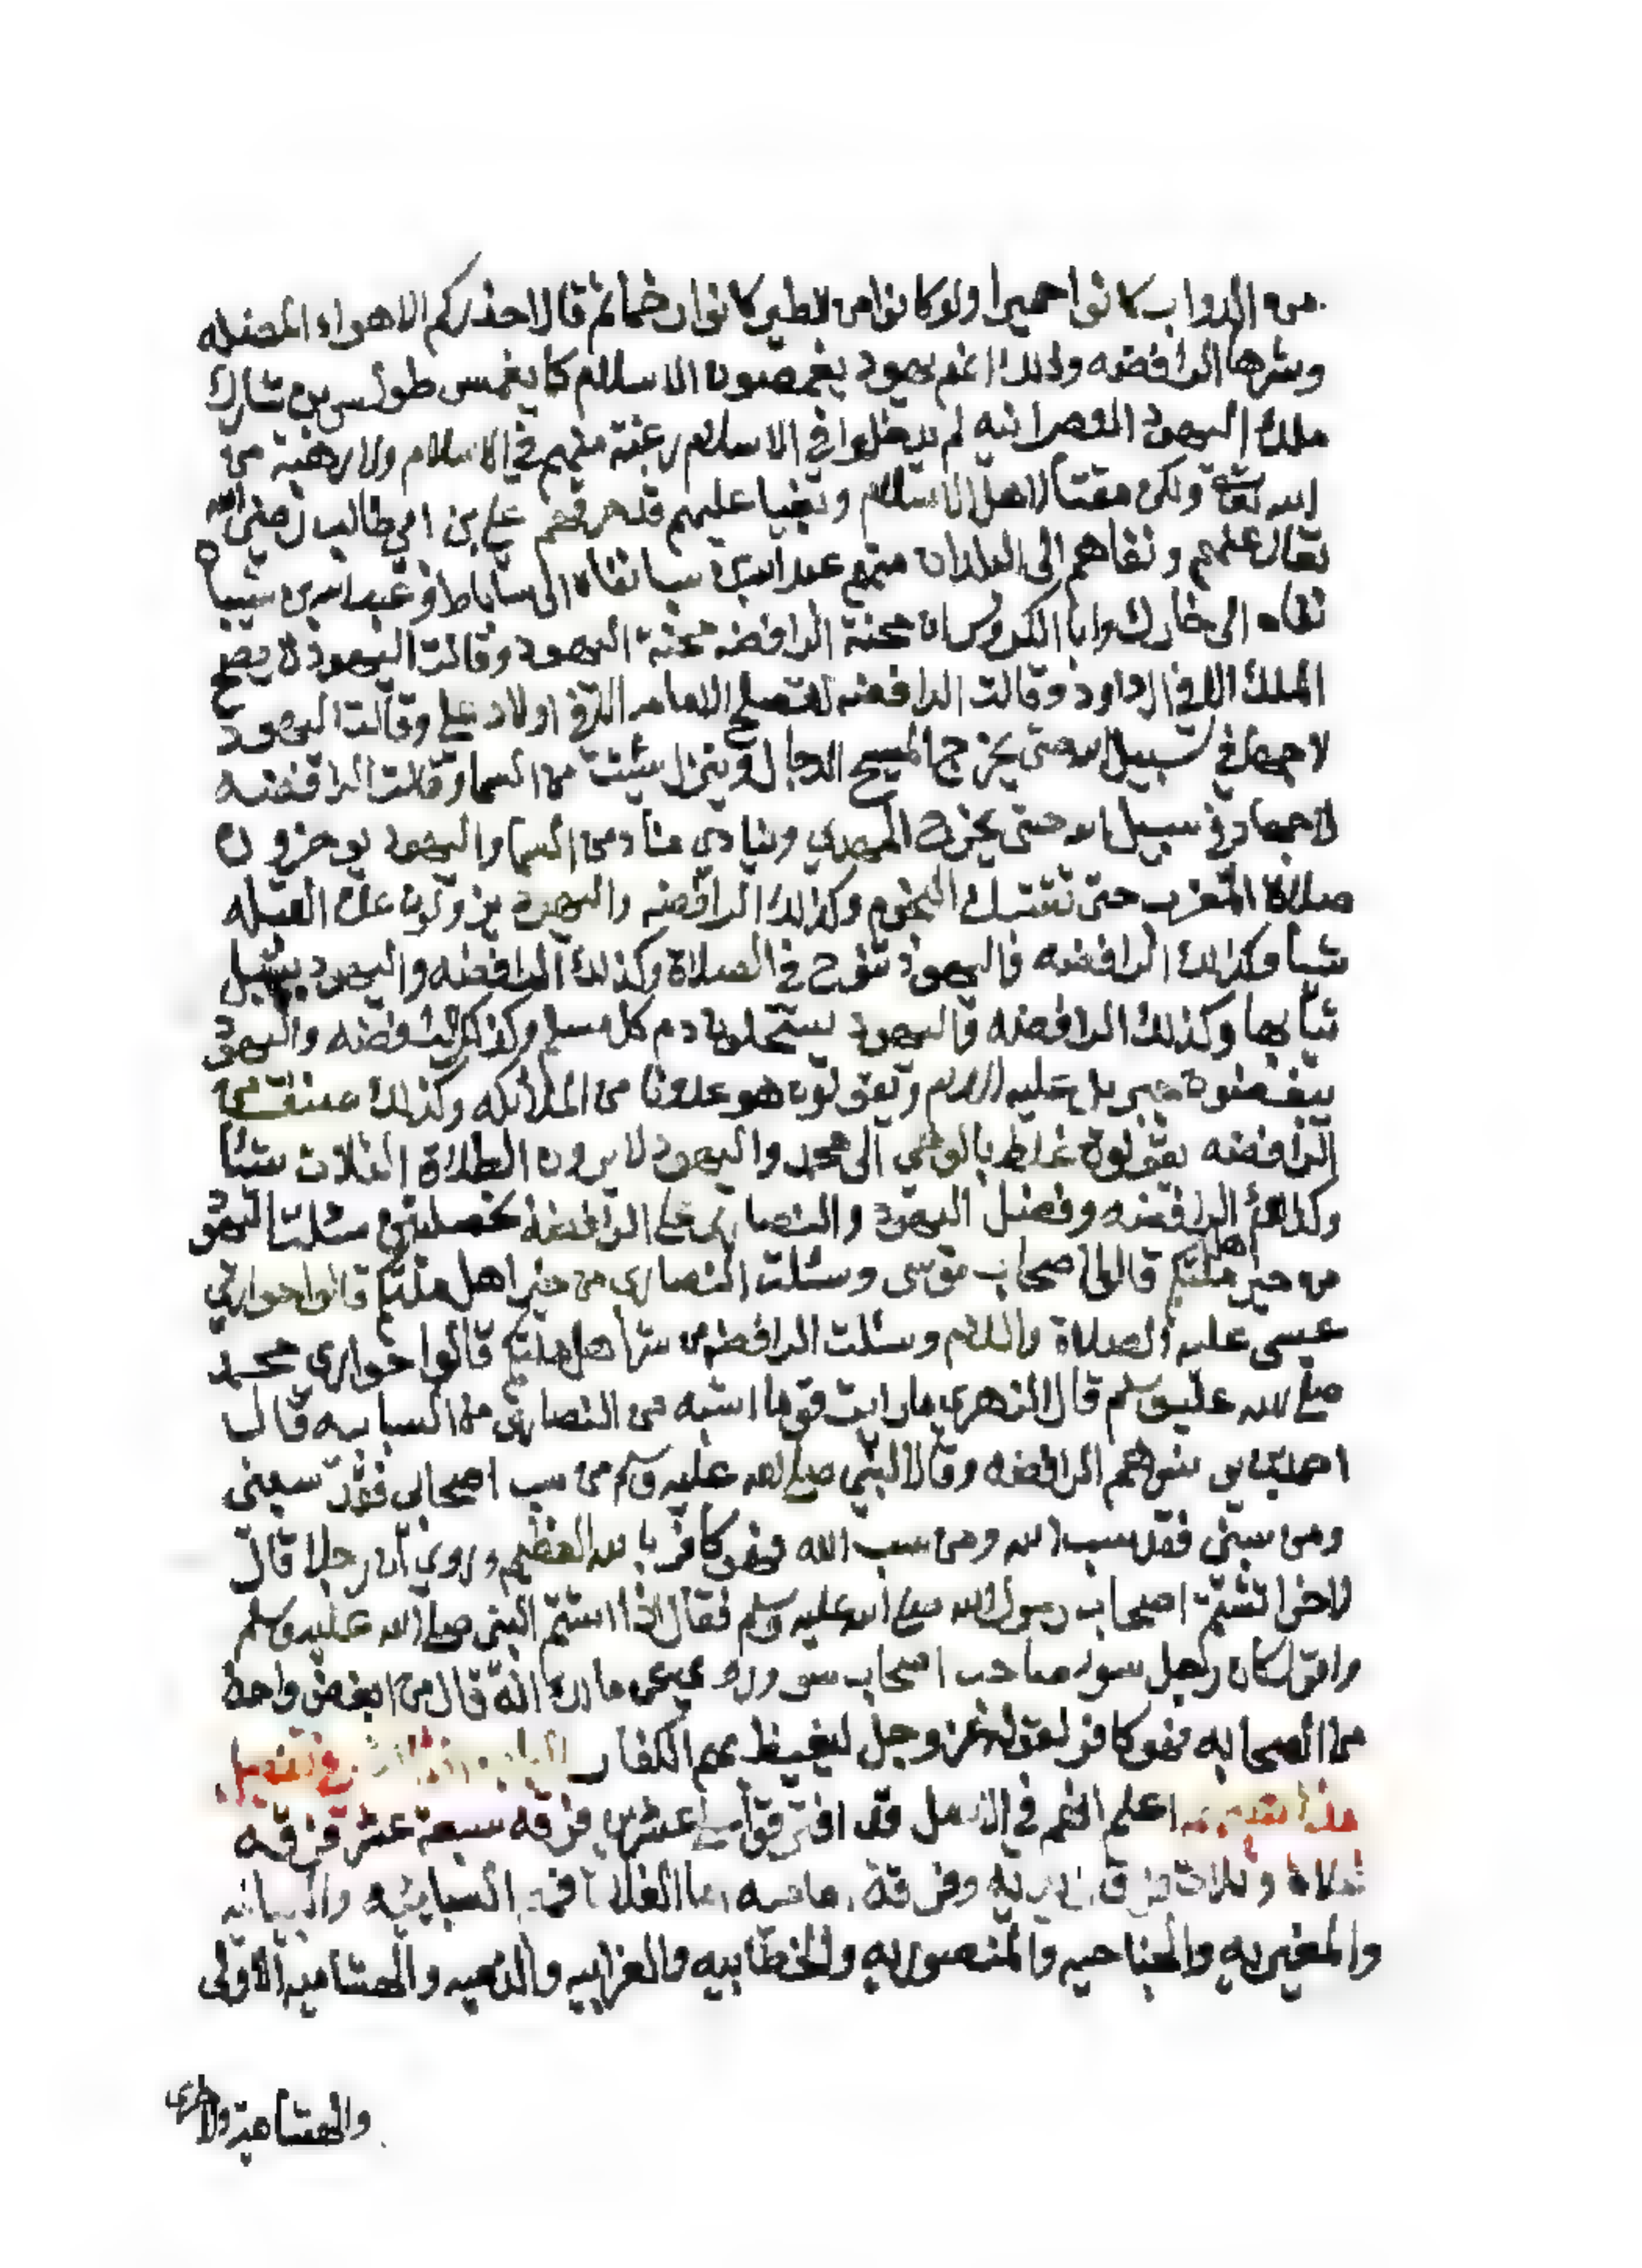 من الدواب كانوا حميرا ولو كانوا من الطير كانوا رخما ثم قال احذركم الاهواء المضله
وشرها الرافضه وذلك انهم يهود يغمصون الاسلام كما يغمس بولس بن
ملك اليهود النصرانيه لم يدخلوا في الاسلام رغبة منهم في الاسلام ولا رهبة من
الله تعالى ولكن مقتا لاهل الاسلام وبغيا عليهم قد حرقهم علي بن ابي طالب رضي الله
تعالى عنهم ونفاهم الى البلدان منهم عبد الله بن سبا نفاه الى ساباط وعبد الله بن
نفاه الى خازر وابا الكروس ان محنة الرافضه محنة اليهود وقالت اليهود لا يصلح
الملك الا في ال داود وقالت الرافضه لا تصلح الامامه الا في اولاد علي وقالت اليهود
لا جهاد في سبيل الله حتى يخرج المسيح الدجال وينزل من السما وقالت الرافضه
لا جهاد في سبيل الله حتى يخرج المهدي وينادي مناد من السما واليهود يوخرون
صلاة المغرب حتى تشتبك النجوم وكذلك الرافضه واليهود يزولون عن القبله
شيا وكذلك الرافضه واليهود تنوح في الصلاة وكذلك الرافضه واليهود
ثيابها وكذلك الرافضه واليهود يستحلون دم كل مسلم وكذلك الرافضه واليهود
يبغضون جبريل عليه السلام ويقولون هو عدونا من الملائكه وكذلك صنف من
الرافضه يقولون غلط بالوحي الى محمد واليهود لا يرون الطلاق الثلاث شيئا
وكذلك الرافضه وفضل اليهود والنصارى على الرافضه بخصلتين سئلت اليهود
من خير اهل ملتكم قالوا اصحاب موسى وسئلت النصارى من خير اهل ملتكم قالوا حواري
عيسى عليه الصلاة والسلام وسئلت الرافضه من شر اهل ملتكم قالوا حواري محمد
صلى الله عليه وسلم قال الزهري ما رايت قوما اشبه من النصارى من السبابيه قال
احمد بن يونس هم الرافضه وقال النبي صلى الله عليه وسلم من سب اصحابي فقد سبني
ومن سبني فقد سب الله ومن سب الله فهو كافر بالله العظيم وروي ان رجلا قال
لاخر اتشتم اصحاب رسول الله صلى الله عليه وسلم فقال اذا اشتم النبي صلى الله عليه وسلم
واقول كان رجل سوء صاحب اصحاب سوء وروى عن مالك انه قال من ابغض واحدا
من الصحابه فهو كافر لقوله عز وجل ليغيظ بهم الكفار في تفصيل
اعلم انهم في الاصل قد افترقوا عشرين فرقه سبعة عشر فرقه
غلاة وثلاث فرق زيديه وفرقة اماميه اما الغلاة فهم السبابيه والبيانيه
والمغيريه والجناحيه والمنصوريه والخطابيه والغرابيه والذميه والهشاميه الاولى
والهشامية الاخرى